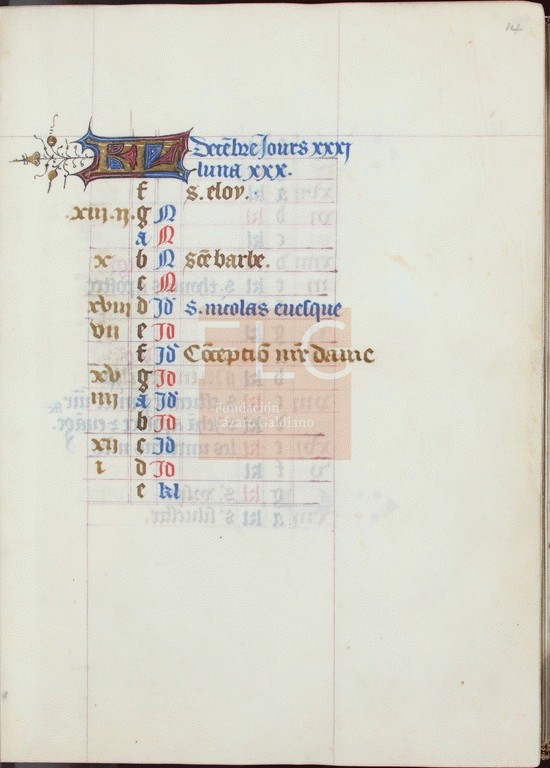 14
KL Decẽbre Jours xxxj
luna xxx.
f s. eloy.
.xiii.ij. g N
a N
x b N Scẽ barbe.
c N
xviii d Jd̃ S. nicolas euesque
vii e Jd
f Jd̃ Cõceptiõ nr̃e dame
xv g Jd
iiij a Jd̃
b Jd
xii c Jd̃
i d Jd
e kl
FLG
fundación
lázaro galdiano